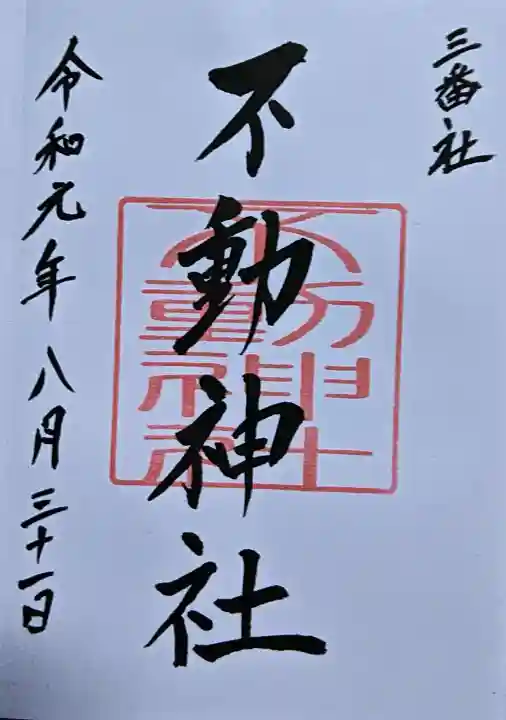 三番社
不動神社
不動神社
令和元年八月三十一日